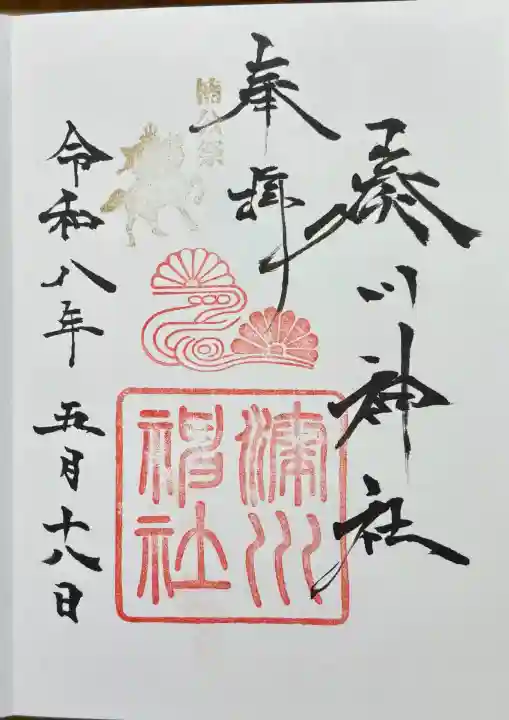 湊川神社
奉拝
楠公祭
湊川
神社
令和八年 五月十八日